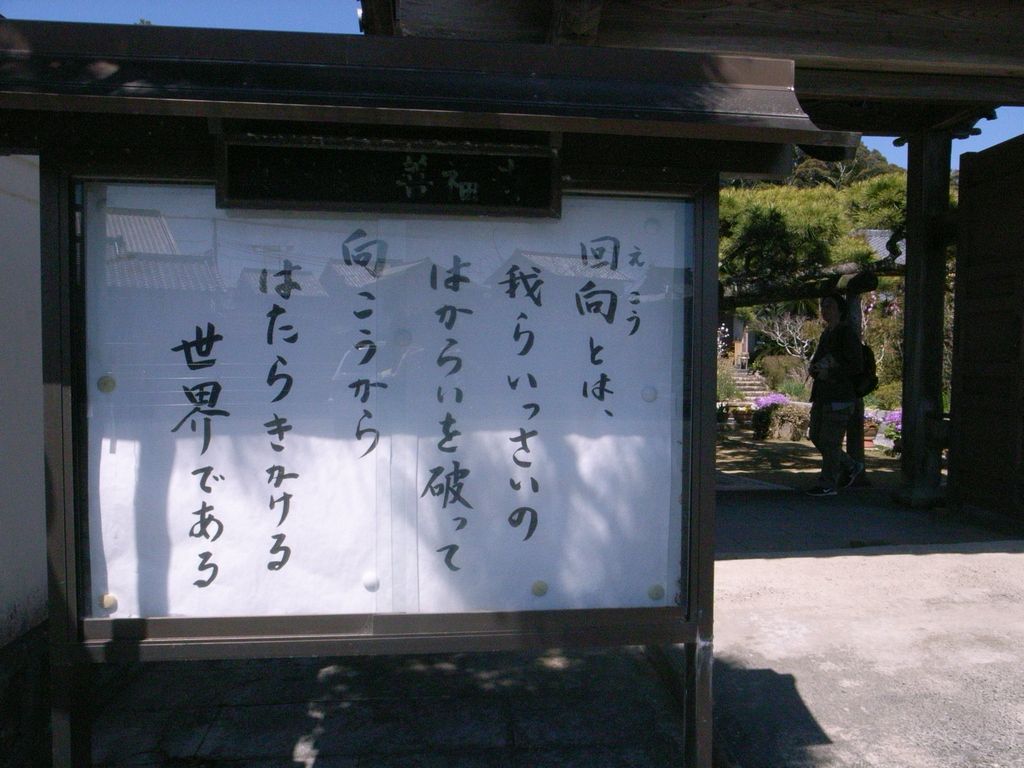 回向とは、
えこう
我らいっさいの
はからいを破って
向こうから
はたらきかける
世界である